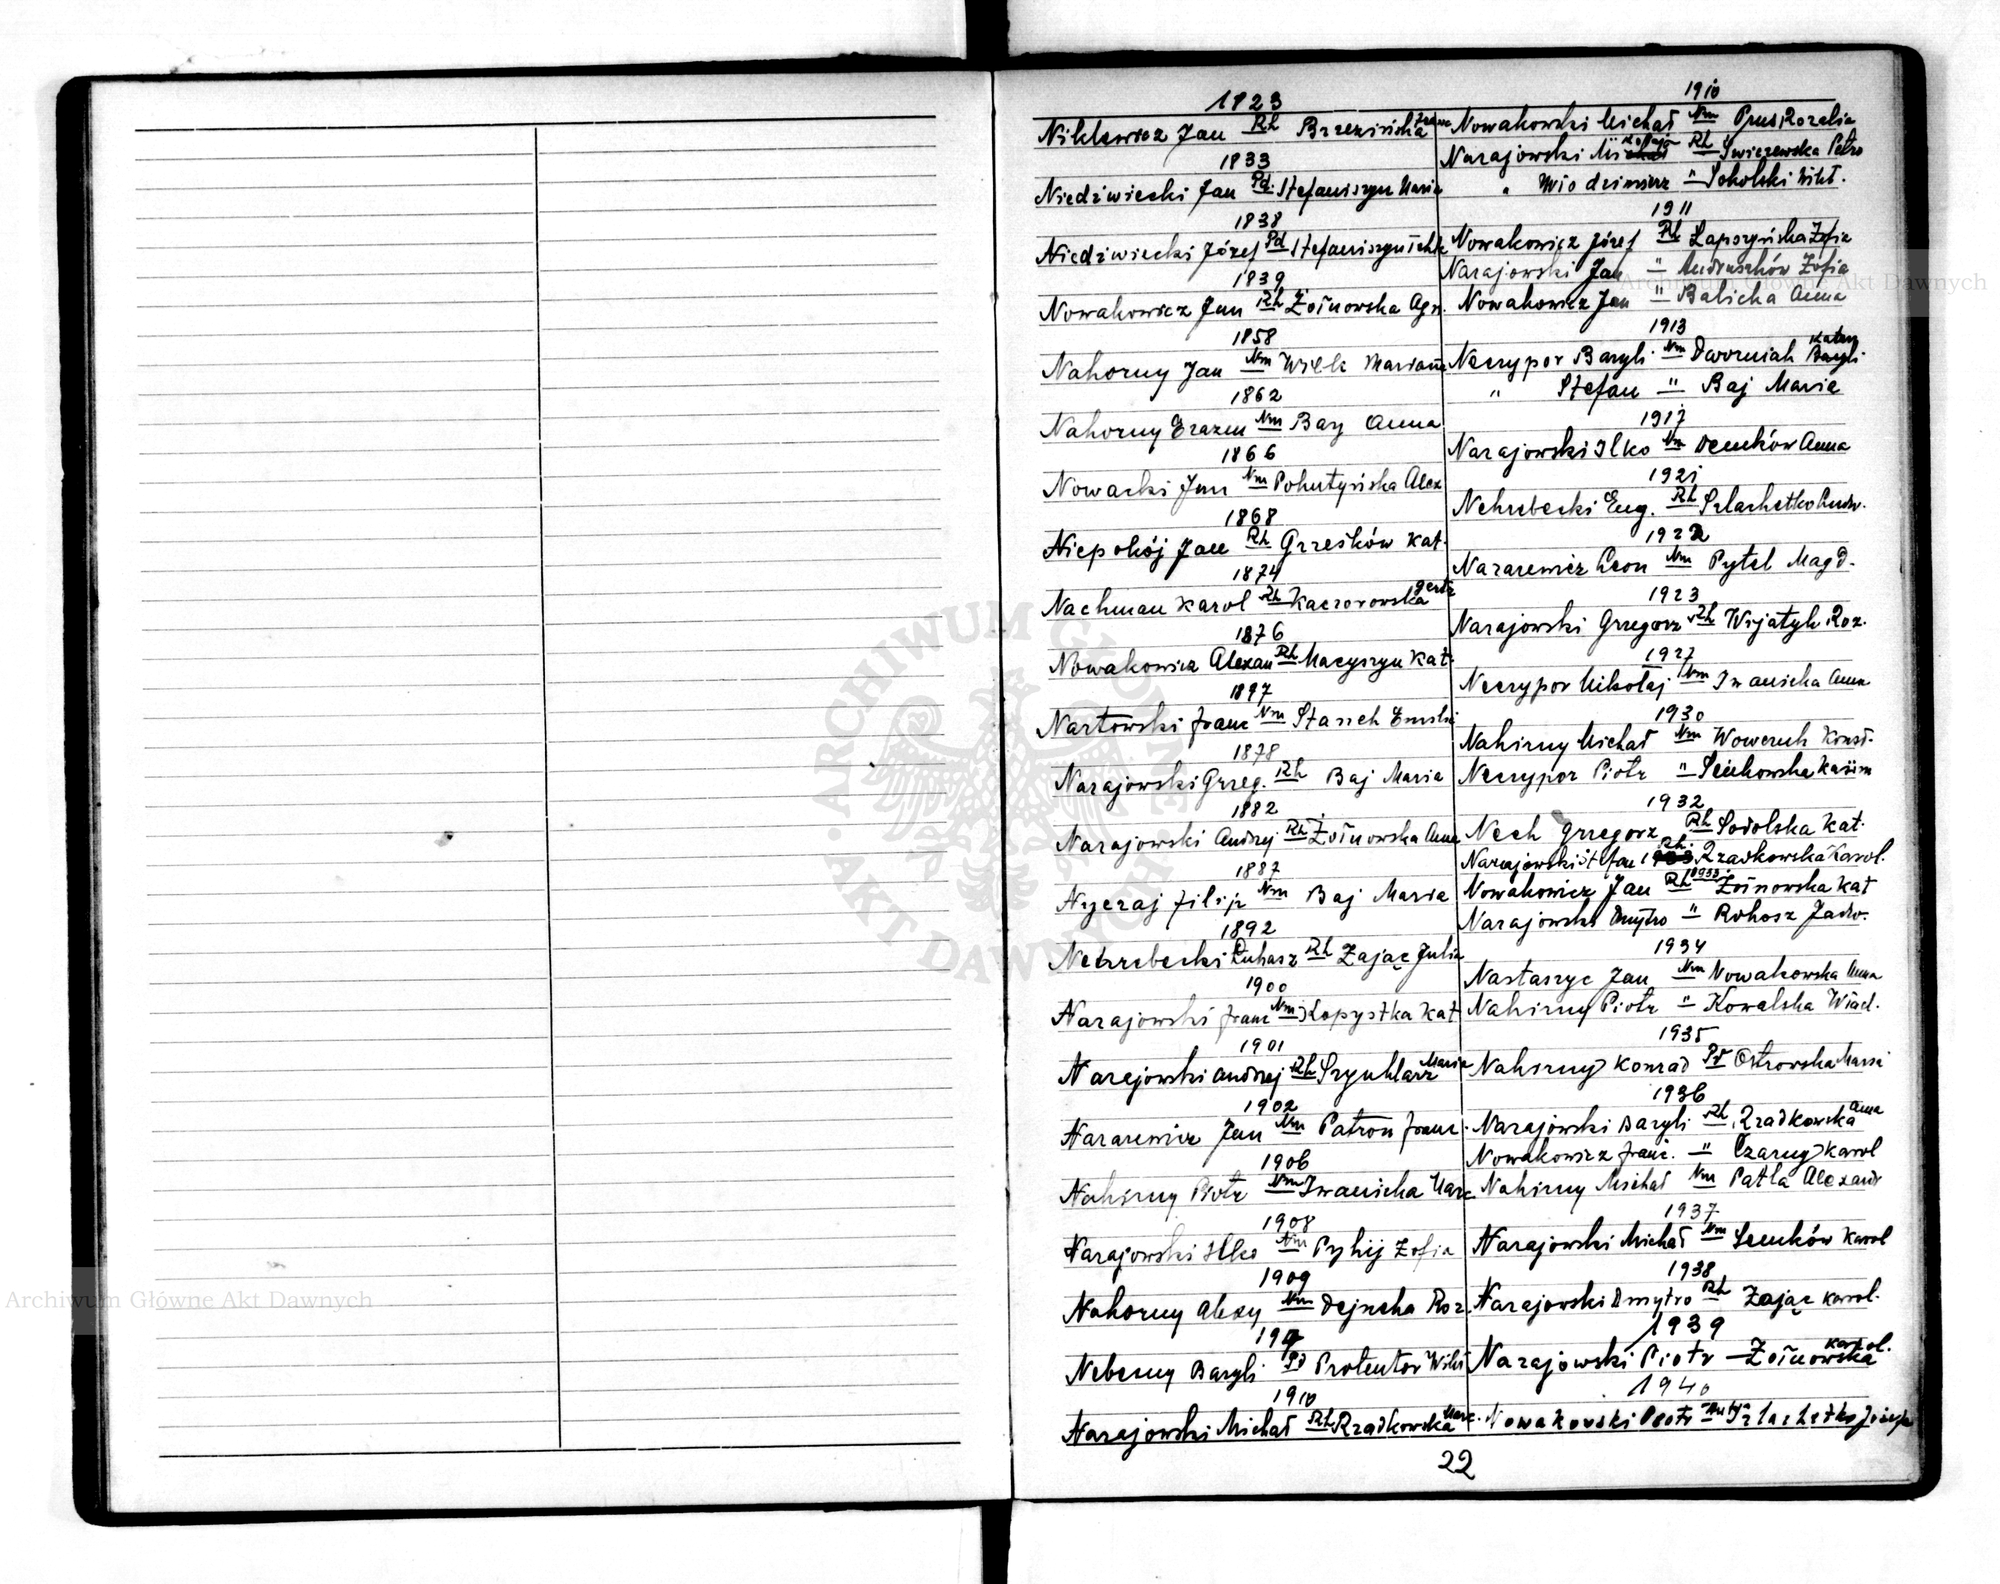 1823
Niklewicz Jan Rh Brzezińska
1833
Niedźwiecki Jan Pd. Stefaniszyn Maria
1838
Niedźwiecki Józef Pd Stefaniszyn
1839
Nowakowicz Jan Rh Żołnowska Agn.
1858
Nahorny Jan Nm Wilk Marianna
1862
Nahorny Erazm Nm Bay Anna
1866
Nowacki Jan Nm Pohutyńska Alex
1868
Niepokój Jan Rh Grześków Kat.
1874
Nachman Karol Rh Kaczorowska Gertr
1876
Nowakowicz Alexan Rh Macyszyn Kat.
1897
Nartowski Franc Nm Stasich Emilia
1878
Narajowski Grzeg. Rh Baj Maria
1882
Narajowski Andrzej Rh Żołnowska Anna
1887
Nyczaj Filip Nm Baj Maria
1892
Nehrebecki Łukasz Rh Zając Julia
1900
Narajowski Franc Nm Kopystka Kat
1901
Narajowski Andrzej Rh Szynklarz Maria
1902
Nazarewicz Jan Nm Patron Franc.
1906
Nahirny Piotr Nm Iwanicka Mar
1908
Narajowski Ilko Nm Pyhij Zofia
1909
Nahorny Alexy Nm Dejneka Roz.
Nebesny Bazyli Pd Protentor Wikt
1910
Narajowski Michał Rh Rzadkowska Mar.
1910
Nowakowski Michał Nm Prus Rozalia
Narajowski Rh Świczewska Petro
" Włodzimierz " Sokolski Wikt.
1911
Nowakowicz Józef Rh Łapszyńska Zofia
Narajowski Jan " Andruszków Zofia
Nowakowicz Jan " Balicka Anna
1913
Neczypor Bazyli Nm Dworniak Katarz Bazyli
" Stefan " Baj Maria
1917
Narajowski Ilko Nm Demków Anna
1921
Nehrebecki Eug. Rh Szlachetko Ludw.
1922
Nazarewicz Leon Nm Pytel Magd.
1923
Narajowski Grzegorz Rh Wijatyk Roz.
1927
Neczypor Mikołaj Nm Iwanicka Anna
1930
Nahirny Michał Nm Woweruk Konst.
Neczypor Piotr " Seńkowska Kazim
1932
Nech Grzegorz Rh Sodolska Kat.
Narajowski Stefan Rh. Rzadkowska Karol.
Nowakowicz Jan Rh 1933 Żołnowska Kat
Narajowski Dmytro " Rokosz Jadw.
1934
Nastaszyc Jan Nm Nowakowska Anna
Nahirny Piotr " Kowalska Wład.
1935
Nahirny Konrad Pd Ostrowska Maria
1936
Narajowski Bazyli Rh Rzadkowska Anna
Nowakowicz Franc. " Czarny Karol
Nahirny Michał Nm Patla Alexandr
1937
Narajowski Michał Nm Semków Karol
1938
Narajowski Dmytro Rh Zając Karol.
1939
Narajowski Piotr — Żołnowska Karol.
1940
Nowakowski Piotr Szlachetko Józefa
22
ARCHIWUM GŁÓWNE AKT DAWNYCH
Archiwum Główne Akt Dawnych
Archiwum Główne Akt Dawnych